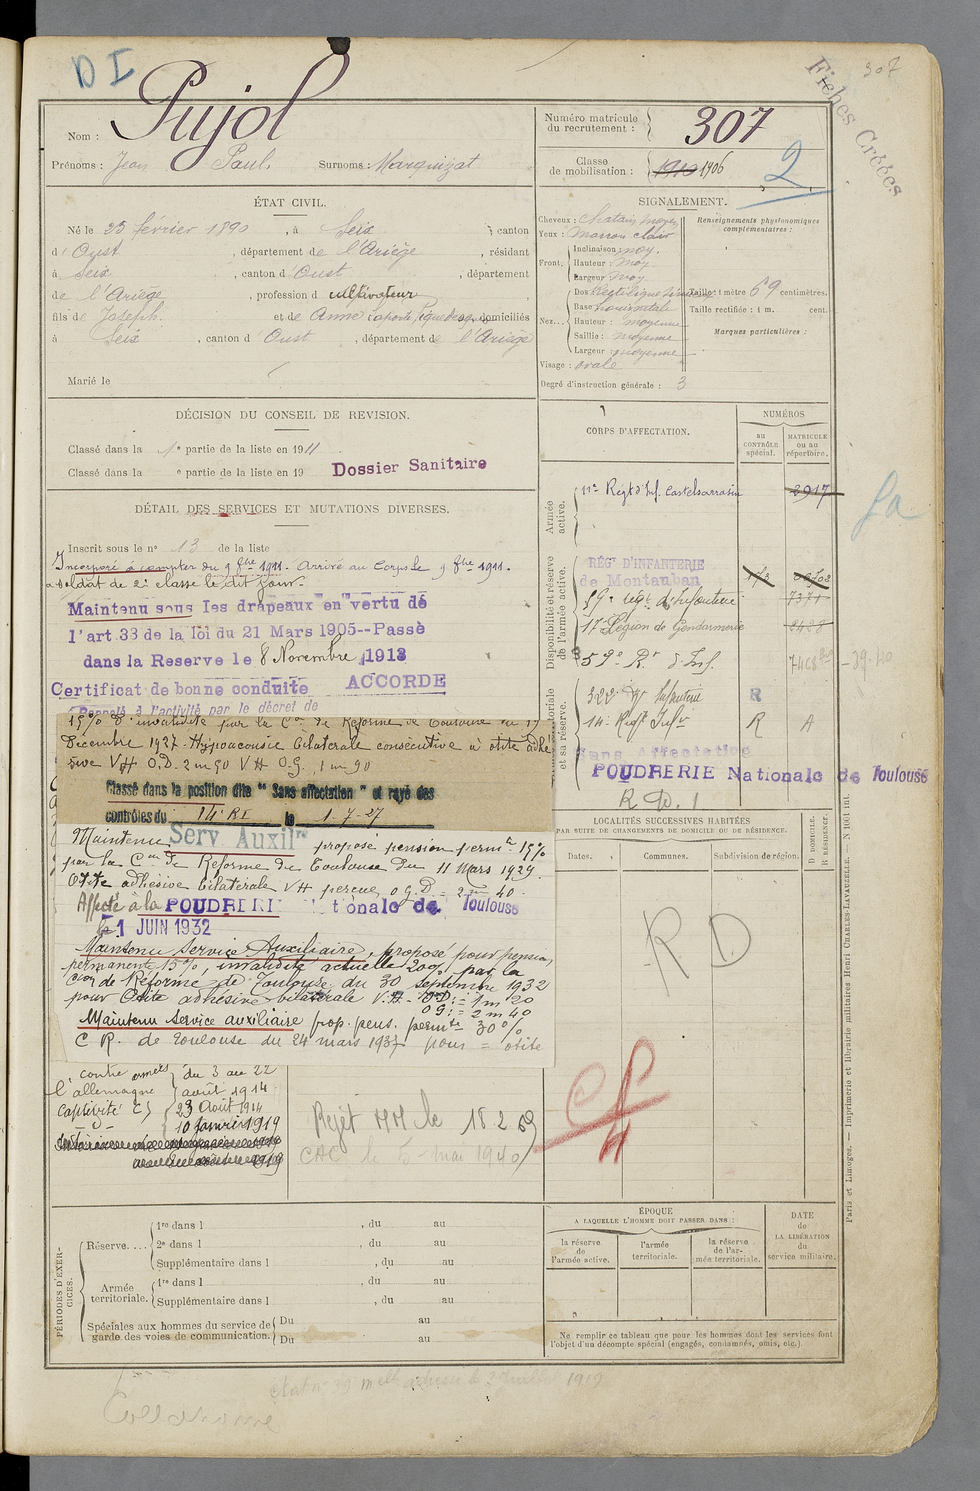 D I
307
Fiches Créées
Nom : Pujol
Prénoms : Jean Paul Surnoms : Marquizat
Numéro matricule du recrutement : 307
Classe de mobilisation : 1910 1906
2
ÉTAT CIVIL.
Né le 25 février 1890, à Seix canton
d'Oust, département de l'Ariège, résidant
à Seix, canton d'Oust, département
de l'Ariège, profession d cultivateur
fils de Joseph et de Anne Laporte domiciliés
à Seix, canton d'Oust, département de l'Ariège
Marié le
SIGNALEMENT.
Cheveux : Chatain moyen
Yeux : Marron clair
Front. Inclinaison : moy.
Hauteur : moy
Largeur : moy
Nez... Dos : Rectiligne
Base : horizontale
Hauteur : moyenne
Saillie : moyenne
Largeur : moyenne
Visage : ovale
Renseignements physionomiques complémentaires :
Taille : 1 mètre 69 centimètres.
Taille rectifiée : 1 m. cent.
Marques particulières :
Degré d'instruction générale : 3
DÉCISION DU CONSEIL DE REVISION.
Classé dans la 1e partie de la liste en 1911
Classé dans la e partie de la liste en 19
Dossier Sanitaire
DÉTAIL DES SERVICES ET MUTATIONS DIVERSES.
Inscrit sous le no 13 de la liste
Incorporé à compter du 9 8bre 1911. Arrivé au Corps le 9 8bre 1911.
soldat de 2e classe le dit jour.
Maintenu sous les drapeaux en vertu de
l'art 33 de la loi du 21 Mars 1905--Passé
dans la Reserve le 8 Novembre 1913
Certificat de bonne conduite ACCORDE
Rappelé à l'activité par le décret de
15% d'invalidité par la Con de Reforme de Toulouse du 19
Decembre 1927. Hypoacousie bilaterale consécutive à otite adhé
sive VH O.D. 2m50 VH O.G. 1m90
Classé dans la position dite " Sans affectation " et rayé des
contrôles du 14e RI le 1-7-27
Maintenu Serv. Auxilre proposé pension permte 15%
par la Con de Reforme de Toulouse du 11 Mars 1929.
Otite adhésive bilatérale VH percue O.G.D = 2m 40
Affecté à la POUDRERIE Nationale de Toulouse
le 1 JUIN 1932
Maintenu Service Auxiliaire, proposé pour pension
permanente 15%, invalidité actuelle 20% par la
Con de Réforme de Toulouse du 30 septembre 1932
pour Otite adhésive bilatérale V.H. O.D : = 1m 20
O G : = 2m 40
Maintenu Service auxiliaire prop. pens. permte 30%
C R. de Toulouse du 24 mars 1937 pour = otite
contre du 3 au 22
l'allemagne août 1914
Captivité 23 Août 1914
10 Janvier 1919
Rejet MM le 18 2 59
CAC le 5 mai 1940
CORPS D'AFFECTATION.
NUMÉROS
au CONTRÔLE spécial.
MATRICULE ou au répertoire.
Armée active.
11e Régt d'Inf. Castelsarrasin 2917
Disponibilité et réserve de l'armée active.
RÉGt D'INFANTERIE
de Montauban
59e régt d'infanterie 7371
17e Légion de Gendarmerie 2428
59e Rt d'Inf.
Armée territoriale et sa réserve.
322e Rt Infanterie R
14e Régt Infie R A
Sans Affectation
POUDRERIE Nationale de Toulouse
R D. 1
LOCALITÉS SUCCESSIVES HABITÉES
PAR SUITE DE CHANGEMENTS DE DOMICILE OU DE RÉSIDENCE.
Dates. Communes. Subdivision de région.
D DOMICILE. R RÉSIDENCE.
RD
PÉRIODES D'EXERCICES.
Réserve.... 1re dans l , du au
2e dans l , du au
Supplémentaire dans l , du au
Armée territoriale. 1re dans l , du au
Supplémentaire dans l , du au
Spéciales aux hommes du service de garde des voies de communication. Du au
Du au
ÉPOQUE
A LAQUELLE L'HOMME DOIT PASSER DANS :
la réserve de l'armée active.
l'armée territoriale.
la réserve de l'armée territoriale.
DATE de LA LIBÉRATION du service militaire.
Ne remplir ce tableau que pour les hommes dont les services font
l'objet d'un décompte spécial (engagés, condamnés, omis, etc.)
Paris et Limoges. — Imprimerie et librairie militaires Henri CHARLES-LAVAUZELLE. — N 1601 int.